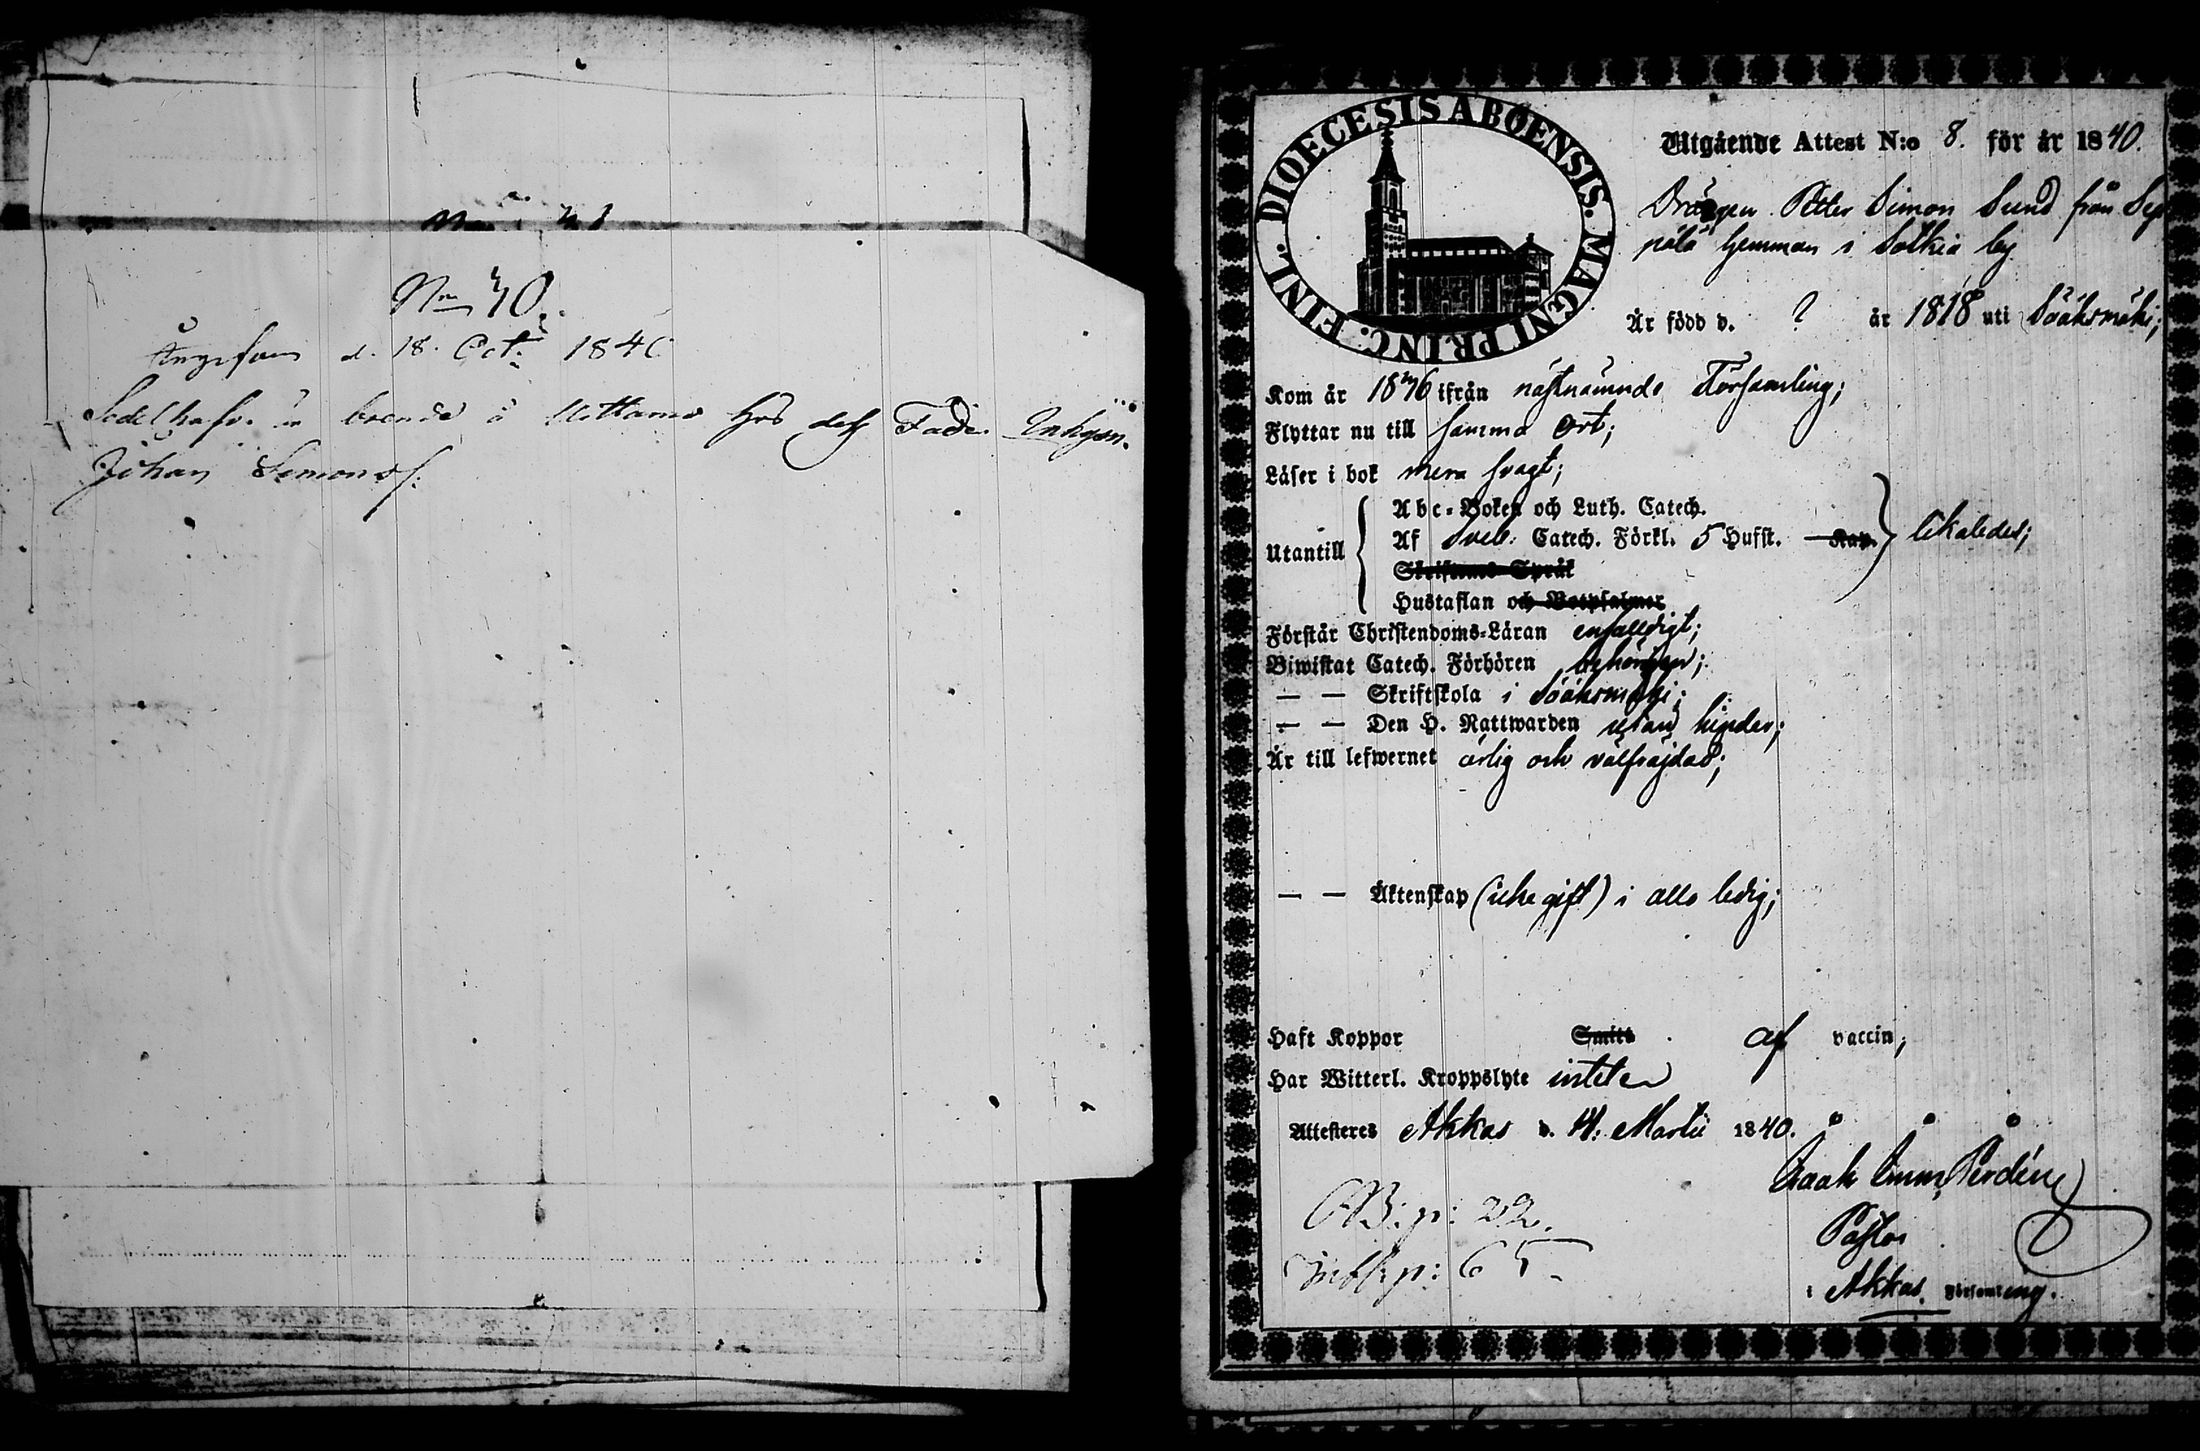 No 40.
Angifven d. 18. Oct. 1840
Sedelhafv. är boende å Uottamo hos dess Fader Inhysn.
Johan Simonss:
FINL. DIOECESIS ABOENSIS. MAGNI PRINC:
Utgående Attest N:o 8. för år 1840.
Drängen Petter Simon Sund från Sep
pälä hemman i Sotkia by
Är född d. ? år 1818 uti Sääksmäki;
Kom år 1836 ifrån nästnämnde Församling;
Flyttar nu till samma Ort;
Läser i bok mera svagt;
Abc-Boken och Luth. Catech.
Utantill Af Sveb. Catech. Förkl. 5 Hufst. Kap. likaledes;
Skriftens Språk
Hustaflan och Botpsalmer
Förstår Christendoms-Läran enfaldigt;
Biwistat Catech. Förhören behörigen;
— — Skriftskola i Sääksmäki;
— — Den H. Nattwarden utan hinder;
Är till lefwernet ärlig och välfräjdad;
— — Äktenskap (icke gift) i allo ledig;
Haft Koppor Smitt. af vaccin;
Har Witterl. Kroppslyte intet
Attesteres Akkas d. 14: Martii 1840.
Isaak Emm. Perdén
Pastor
CB: p: 22.
p: 65.
i Akkas Församling.